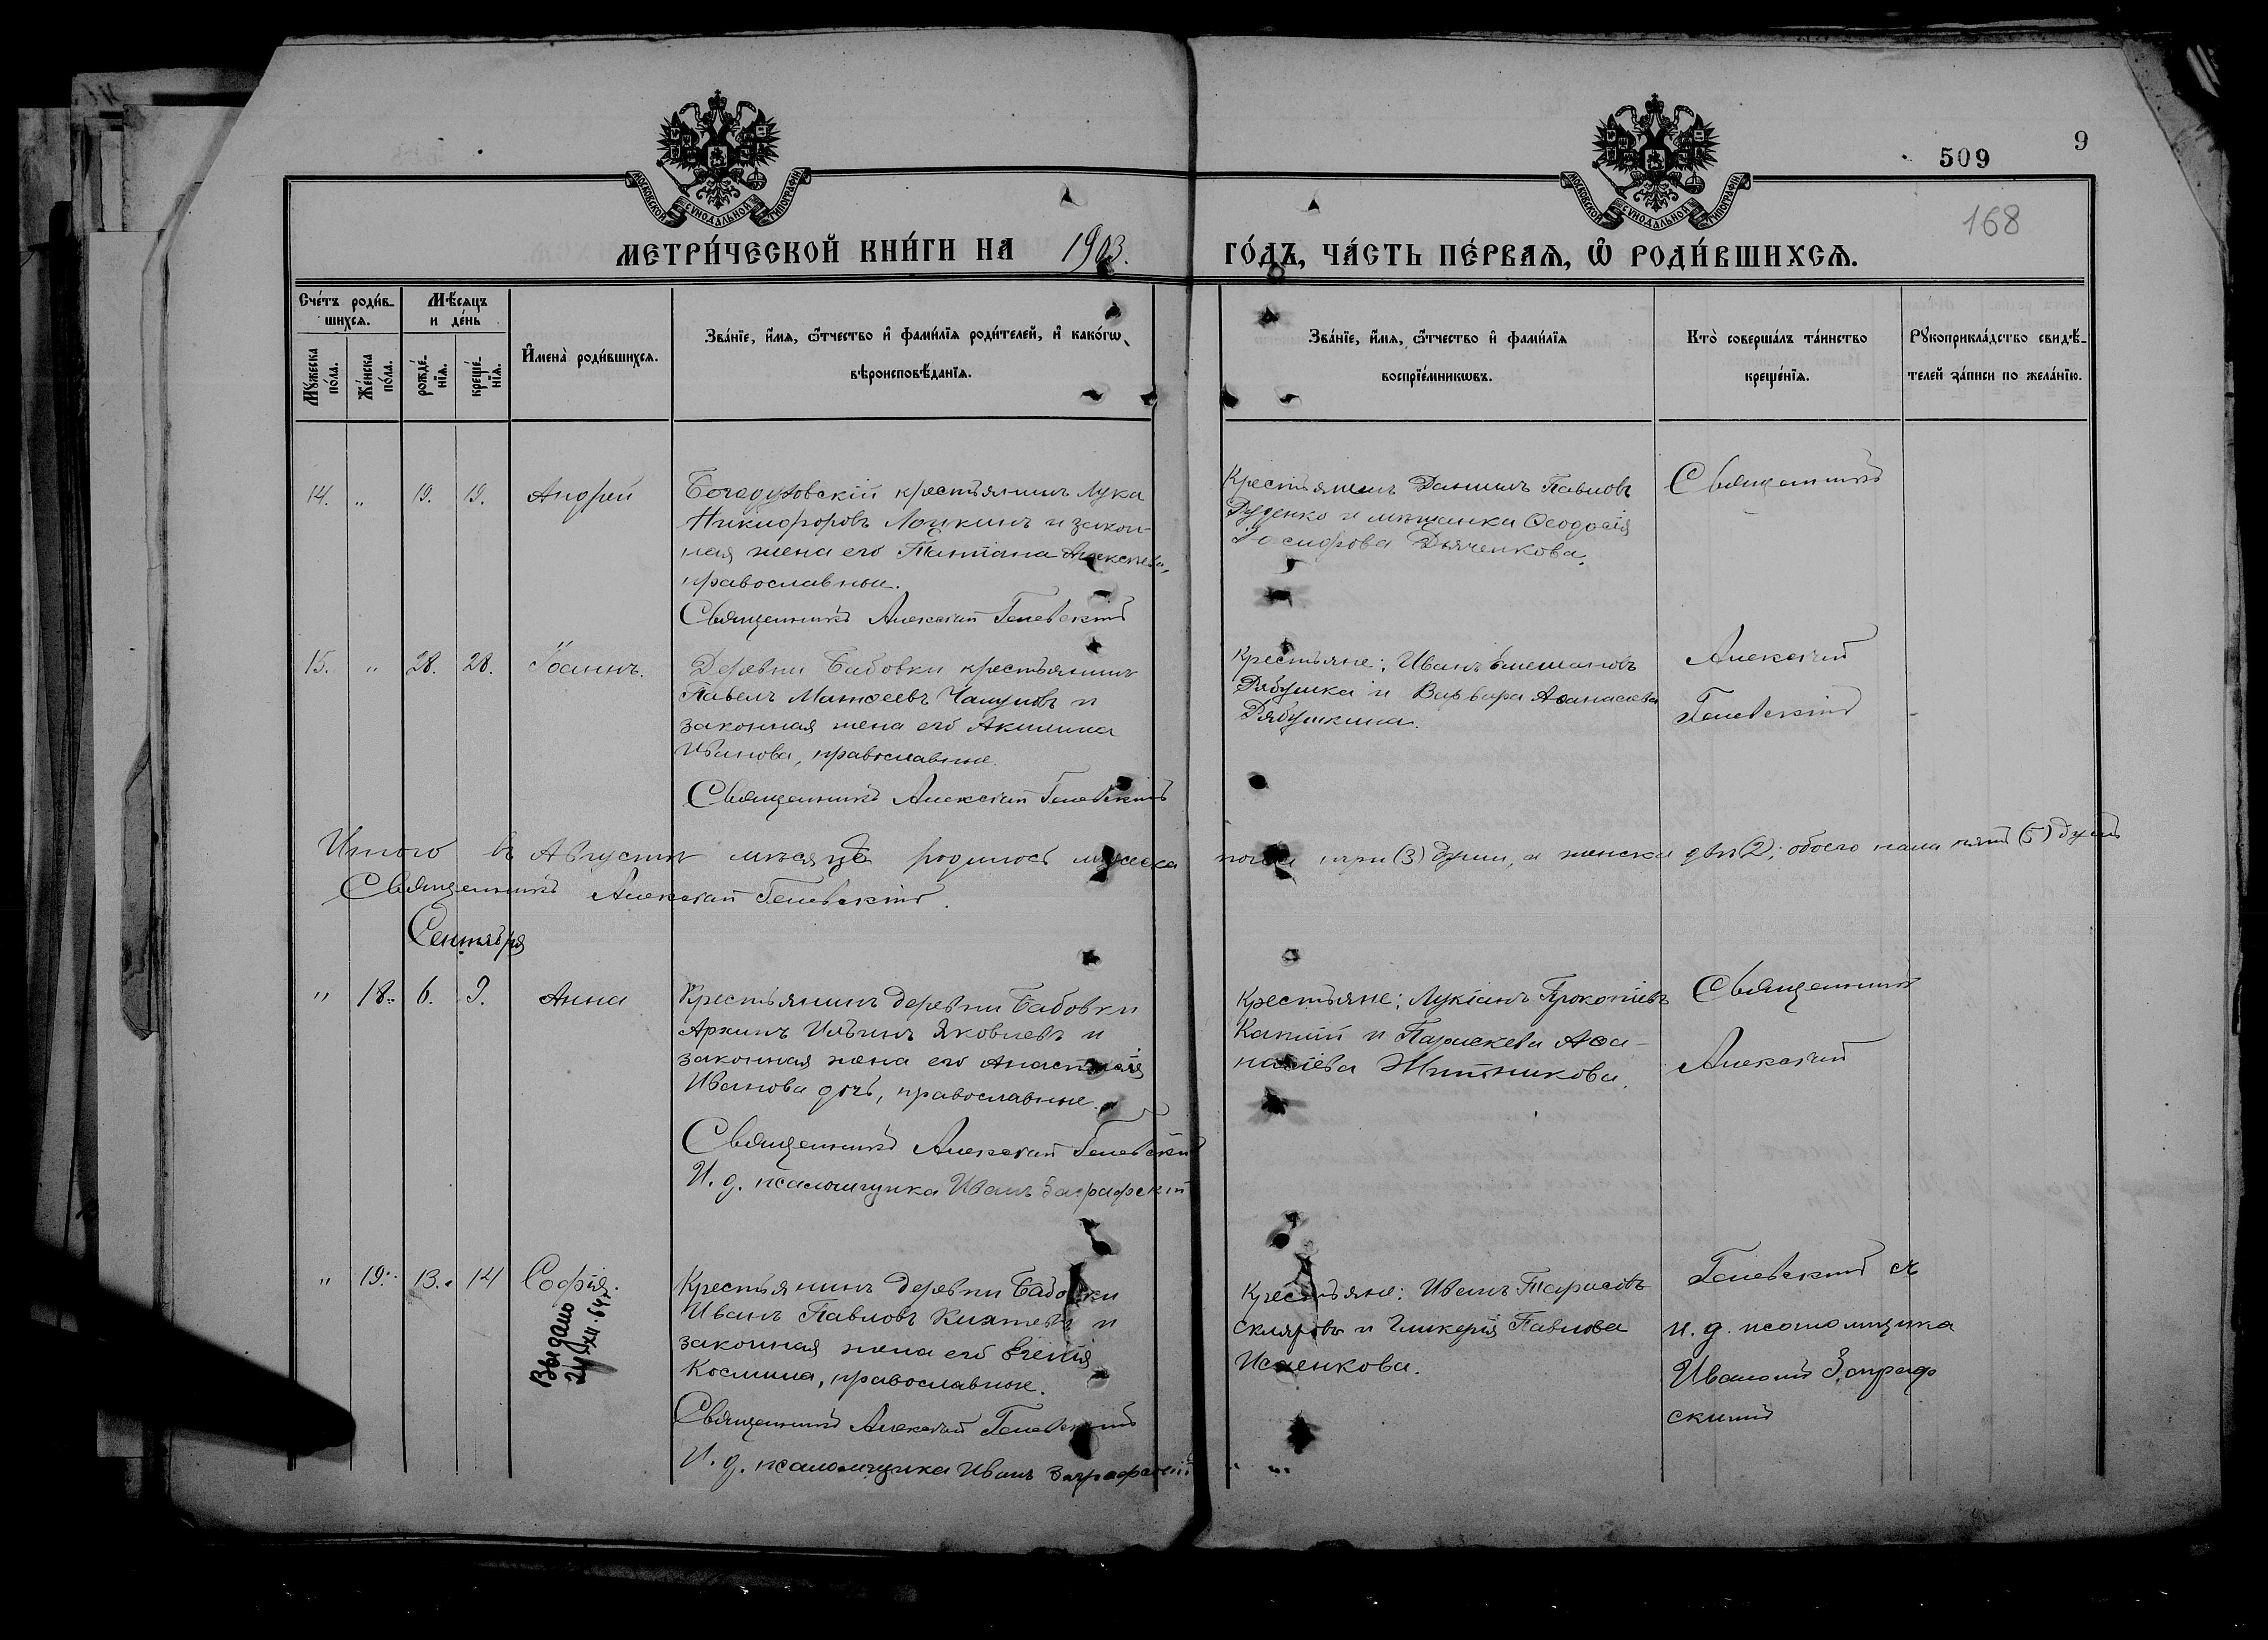 509
9
168
МОСКОВСКОЙ СѴНОДАЛЬНОЙ ТИПОГРАФІИ
МОСКОВСКОЙ СѴНОДАЛЬНОЙ ТИПОГРАФІИ
МЕТРИ́ЧЕСКОЙ КНИ́ГИ НА 1903. ГО́ДЪ, ЧА́СТЬ ПЕ́РВАѦ, Ѽ РОДИ́ВШИХСѦ.
Сче́тъ роди́в-
шихсѧ.
Мꙋ́жеска по́ла.
Же́нска по́ла.
Мѣ́сѧцъ и де́нь
рожде́нїѧ.
креще́нїѧ.
И҆мена̀ роди́вшихсѧ.
Зва́нїе, и҆́мѧ, ѻ҆́тчество и҆ фами́лїѧ роди́телей, и҆ како́гѡ
вѣроисповѣ́данїѧ.
Зва́нїе, и҆́мѧ, ѻ҆́тчество и҆ фами́лїѧ
воспрїе́мникѡвъ.
Кто̀ соверша́лъ та́инство
креще́нїѧ.
Рꙋкоприкла́дство свидѣ́-
телей за́писи по жела́нїю.
14. " 19. 19. Андрей
Богодуховскій крестьянинъ Лука
Никифоровъ и закон-
ная жена его Татіана Алексѣева,
православные.
Священникъ Алексій Гелевскій
Крестьянинъ Даніилъ Павловъ
Руденко и мѣщанка Ѳеодосія
Дьяченкова.
Священникъ
15. " 28. 28. Іоаннъ.
Деревни Бабовки крестьянинъ
Павелъ Матѳеевъ и
законная жена его Акилина
Иванова, православные.
Священникъ Алексій Гелевскій
Крестьяне: Иванъ
Рябушка и Варвара Аѳанасіева
Рябушкина.
Алексій
Гелевскій
Итого въ Августѣ мѣсяцѣ родилось мужеска пола три (3) души, а женска двѣ (2); обоего пола пять (5) душъ
Священникъ Алексій Гелевскій.
Сентябрь
" 18. 6. 9. Анна
Крестьянинъ деревни Бабовки
Архипъ Ильинъ Яковлевъ и
законная жена его Анастасія
Иванова дочь, православные.
Священникъ Алексій Гелевскій
И. д. псаломщика Иванъ Заграфскій
Крестьяне: Лукіанъ Прокопіевъ
и Параскева Аѳа-
насіева Житникова.
Священникъ
Алексій
" 19. 13. 14 Софія.
Выдано
Крестьянинъ деревни Бабовки
Иванъ Павловъ и
законная жена его Евгенія
Космина, православные.
Священникъ Алексій Гелевскій
И. д. псаломщика Иванъ Заграфскій
Крестьяне: Иванъ Тарасовъ
Скляровъ и Гликерія Павлова
Исаенкова.
Гелевскій съ
и. д. псаломщика
Иваномъ Заграф
скимъ